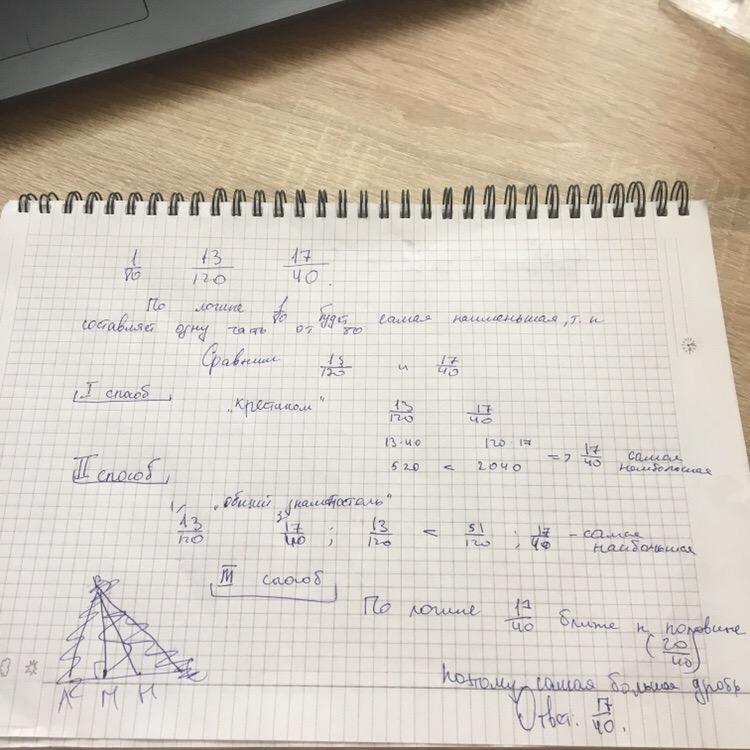 1/80 13/120 17/40.
По логике 1/80 будет самая наименьшая, т.к
составляет одну часть от 80
Сравним 13/120 и 17/40
I способ
„крестиком" 13/120 17/40
13·40 120·17
520 < 2040 => 17/40 самая наибольшая
II способ
„общий знаменатель"
1/ 13/120 3/ 17/40 ; 13/120 < 51/120 ; 17/40 - самая наибольшая
III способ
По логике 17/40 ближе к половине (20/40)
поэтому самая большая дробь
Ответ. 17/40.
M H